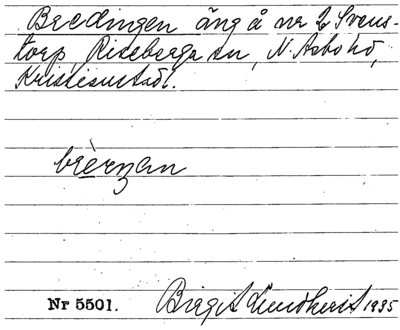 Bredingen äng å nr 2 Svens-
torp, Riseberga sn, N. Åsbo hd,
Kristianstads l.
brèŋən
Nr 5501. Birgit Lundkvist 1935